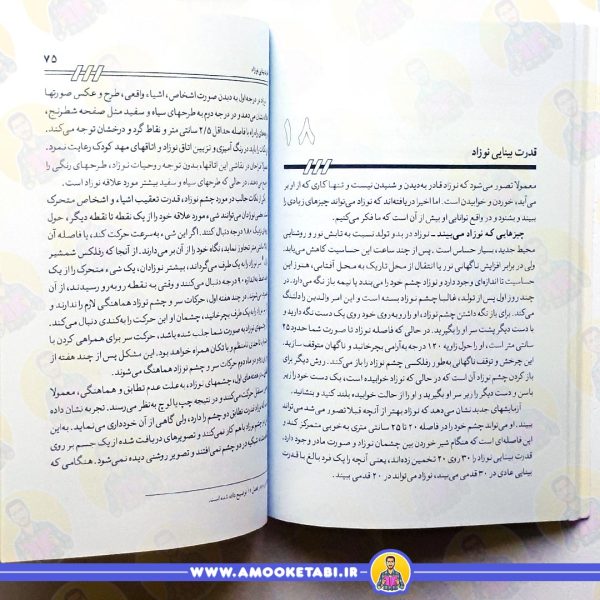 ۱۸
قدرت بینایی نوزاد
معمولاً تصور می‌شود که نوزاد قادر به دیدن و شنیدن نیست و تنها کاری که از او بر
می‌آید، خوردن و خوابیدن است. اما اخیراً دریافته‌اند که نوزاد می‌تواند چیزهای زیادی را
ببیند و بشنود و در واقع توانایی او بیش از آن است که ما فکر می‌کنیم.
چیزهایی که نوزاد می‌بیند ـ نوزاد در بدو تولد نسبت به تابش نور و روشنایی
محیط جدید، بسیار حساس است. پس از چند ساعت این حساسیت کاهش می‌یابد.
ولی در برابر افزایش ناگهانی نور یا انتقال از محل تاریک به محل آفتابی، هنوز این
حساسیت تا اندازه‌ای وجود دارد و نوزاد چشم خود را می‌بندد یا نیمه باز نگه می‌دارد.
چند روز اول پس از تولد، غالباً چشم نوزاد بسته است و این امر والدین را دلتنگ
می‌کند. برای باز نگه داشتن چشم نوزاد، او را رو به روی خود روی یک دست نگه دارید و
با دست دیگر پشت سر او را بگیرید. در حالی که فاصله نوزاد تا صورت شما حدود ۲۵
سانتی متر است، او را حول زاویه ۱۲۰ درجه به‌آرامی بچرخانید و ناگهان متوقف سازید.
این چرخش و توقف ناگهانی به‌طور رفلکسی چشم نوزاد را باز می‌کند. روش دیگر برای
باز کردن چشم نوزاد آن است که در حالی که نوزاد خوابیده است، یک دست خود را زیر
باسن و دست دیگر را زیر سر او بگیرید و او را از حالت خوابیده بلند کنید و بنشانید.
آزمایشهای جدید نشان می‌دهد که نوزاد بهتر از آنچه قبلاً تصور می‌شد می‌تواند
ببیند. او می‌تواند چشم خود را در فاصله ۲۰ تا ۲۵ سانتی متری به خوبی متمرکز کند و
این فاصله‌ای است که هنگام شیر خوردن بین چشمان نوزاد و صورت مادر وجود دارد.
قدرت بینایی نوزاد را ۳۰ روی ۲۰ تخمین زده‌اند، یعنی آنچه را یک فرد بالغ با قدرت
بینایی عادی در ۳۰ قدمی می‌بیند، نوزاد می‌تواند در ۲۰ قدمی ببیند.
۷۵
بینایی نوزاد
در درجه اول به دیدن صورت اشخاص، اشیاء واقعی، طرح و عکس صورتها
می‌دهد و در درجه دوم به طرحهای سیاه و سفید مثل صفحه شطرنج،
راه راه با فاصله حداقل ۲/۵ سانتی متر و نقاط گرد و درخشان توجه می‌کند.
را باید در رنگ آمیزی و تزیین اتاق نوزاد و اتاقهای مهد کودک رعایت نمود.
طراحان در نقاشی این اتاقها، بدون توجه روحیات نوزاد، طرحهای رنگی را
می‌دهند، در حالی که طرحهای سیاه و سفید بیشتر مورد علاقه نوزاد است.
نکات جالب در مورد چشم نوزاد، قدرت تعقیب اشیاء و اشخاص متحرک
نوزادان می‌توانند شیء مورد علاقه خود را از یک نقطه تا نقطه دیگر، حول
۱۸۰ درجه دنبال کنند. اگر این شیء به‌سرعت حرکت کند، یا فاصله آن
متر تجاوز نماید، نگاه خود را از آن بر می‌دارند. از آنجا که رفلکس شمشیر
را به یک طرف می‌گرداند، بیشتر نوزادان، یک شیء متحرک را از یک
اندازه ۹۰ درجه دنبال می‌کنند و وقتی به نقطه روبه‌رو رسیدند، از آن
در چند هفته اول، حرکات سر و چشم نوزاد هماهنگی لازم را ندارند و
یک طرف بچرخانید، چشمان او این حرکت را به‌کندی دنبال می‌کنند.
نوزاد به صورت شما جلب شده باشد، حرکت سر برای همراهی کردن با
نامنظم و با تکان همراه خواهد بود. این مشکل پس از چند هفته از
در ماه دوم حرکات سر و چشم نوزاد هماهنگ می‌شوند.
در هفته‌های اول، چشمهای نوزاد، به‌علت عدم تطابق و هماهنگی، معمولاً
مستقل حرکت می‌کنند و در نتیجه چپ یا لوچ به‌نظر می‌رسند. تجربه نشان داده
نوزاد قدرت تطابق دو چشم را دارد، ولی گاهی از آن خودداری می‌نماید. به این
چشم نوزاد با هم کار نمی‌کنند و تصویرهای دریافت شده از یک جسم بر روی
شبکیه در دو چشم نمی‌افتند و تصویر روشنی دیده نمی‌شود. هنگامی که
توضیح داده شده است.
WWW.AMOOKETABI.IR